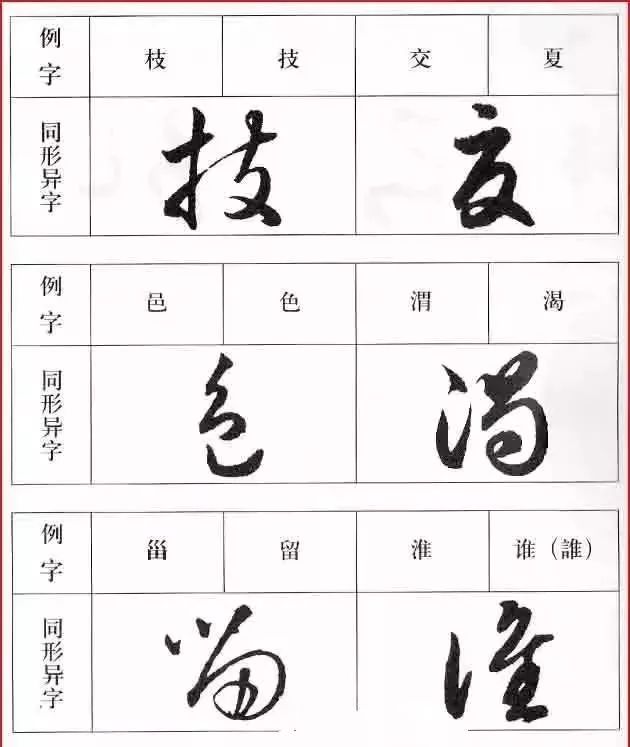 例字 枝 技 交 夏
同形异字
例字 邑 色 渭 渴
同形异字
例字 甾 留 淮 谁（誰）
同形异字